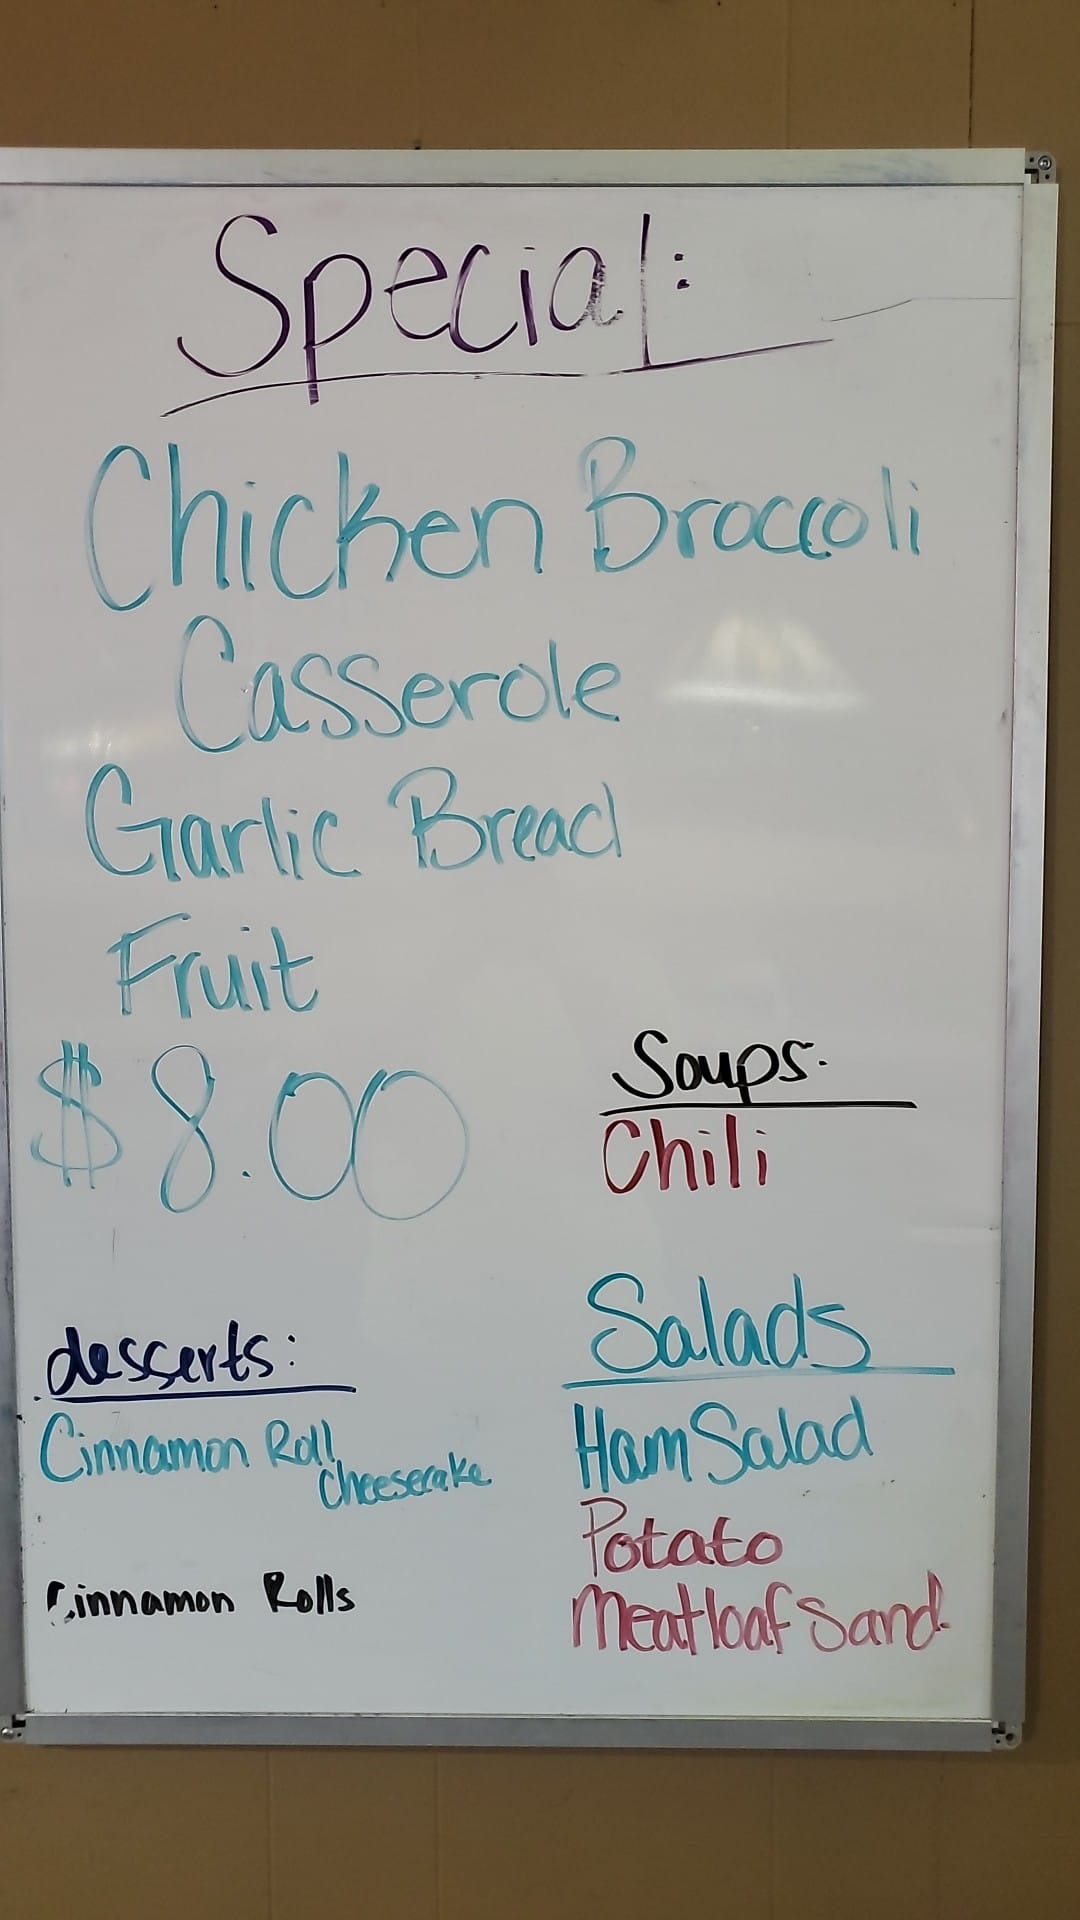 Special:
Chicken Broccoli
Casserole
Garlic Bread
Fruit
$8.00
Soups:
Chili
desserts:
Cinnamon Roll
Cheesecake
Cinnamon Rolls
Salads
Ham Salad
Potato
Meatloaf Sand.